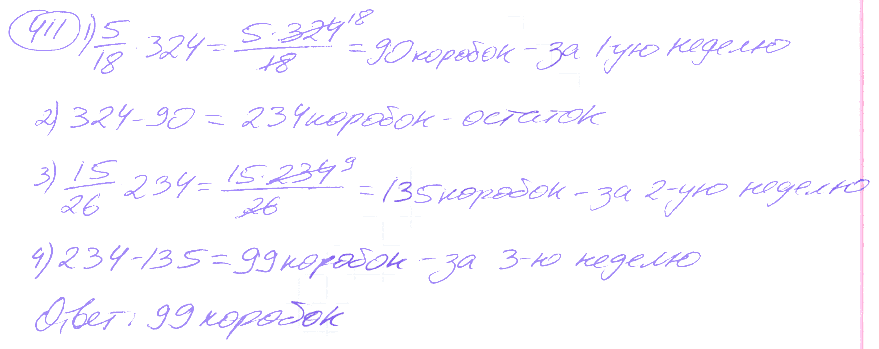 411 1) 5/18 · 324 = 5·324 18/18 = 90 коробок – за 1-ую неделю
2) 324-90 = 234 коробок - остаток
3) 15/26 · 234 = 15·234 9/26 = 135 коробок – за 2-ую неделю
4) 234-135 = 99 коробок – за 3-ю неделю
Ответ: 99 коробок